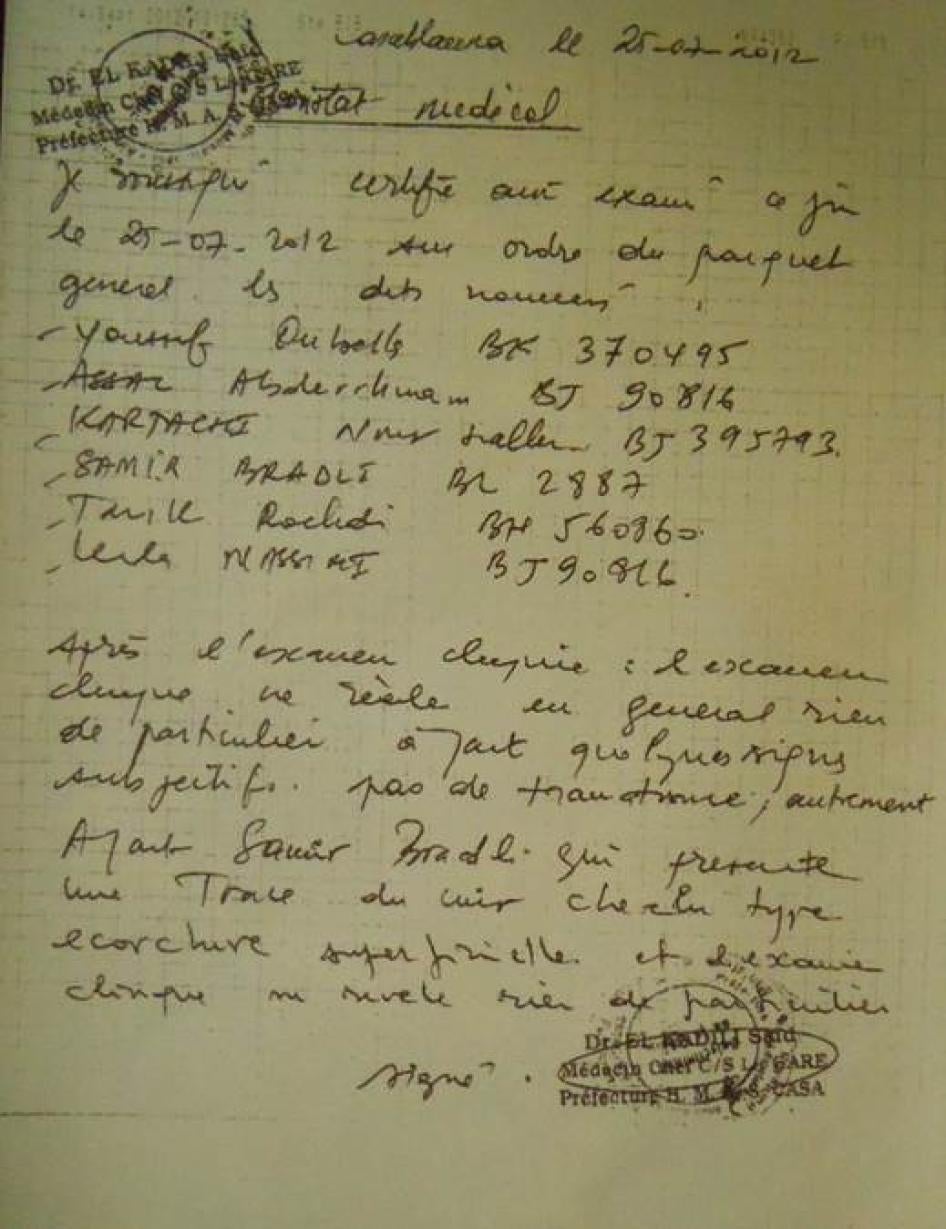 Casablanca le 25-07-2012
Dr. EL KADILI Said
Médecin Chef C/S LA GARE
Préfecture H. M. A.
Constat medical
Je soussigné certifie avoir examiné ce jour
le 25-07-2012 sur ordre du parquet
general les dits nommés
- Youssef Oubella BK 370495
- ASSAL Abderrhmam BJ 90816
- KARTACHI Nour BJ 395793.
- SAMIR BRADLI BL 2887
- Tarik Rochdi BH 560860
- Leila NASSIMI BJ 90816.
Après l'examen clinique : l'examen
clinique ne révèle en general rien
de particulier à part quelques signes
subjectifs. pas de traumatisme, autrement
Apart Samir Bradli qui presente
une Trace du cuir chevelu type
ecorchure superficielle. et l'examen
clinique ne revele rien de particulier
signé .
Dr. EL KADILI Said
Médecin Chef C/S LA GARE
Préfecture H. M. A. S. CASA